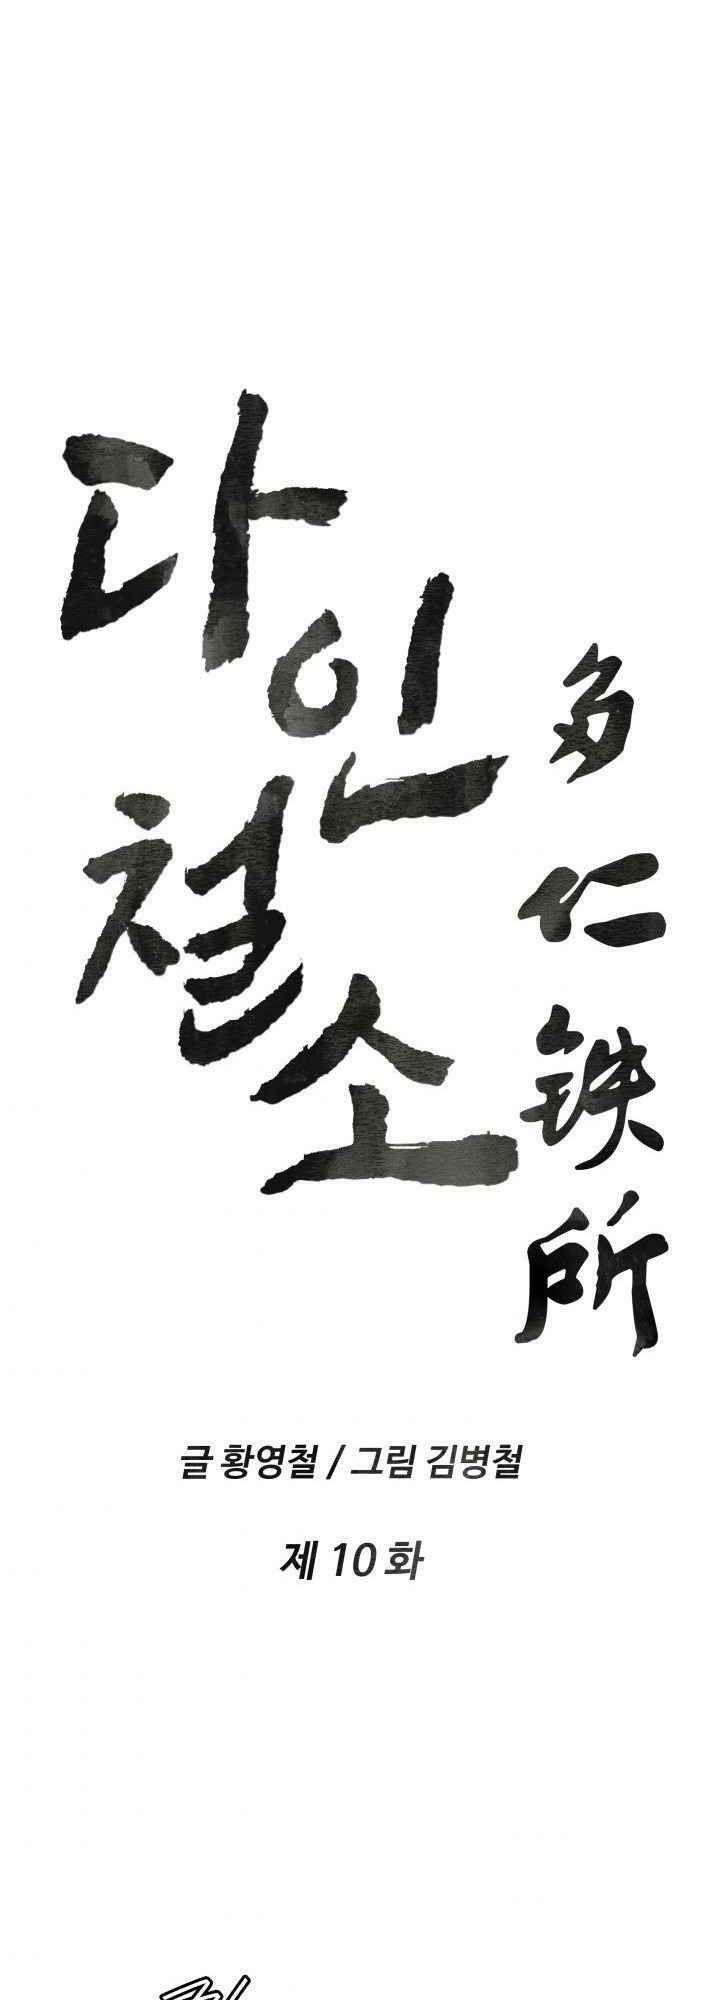 다인
철소
多仁铁所
글 황영철 / 그림 김병철
제 10 화